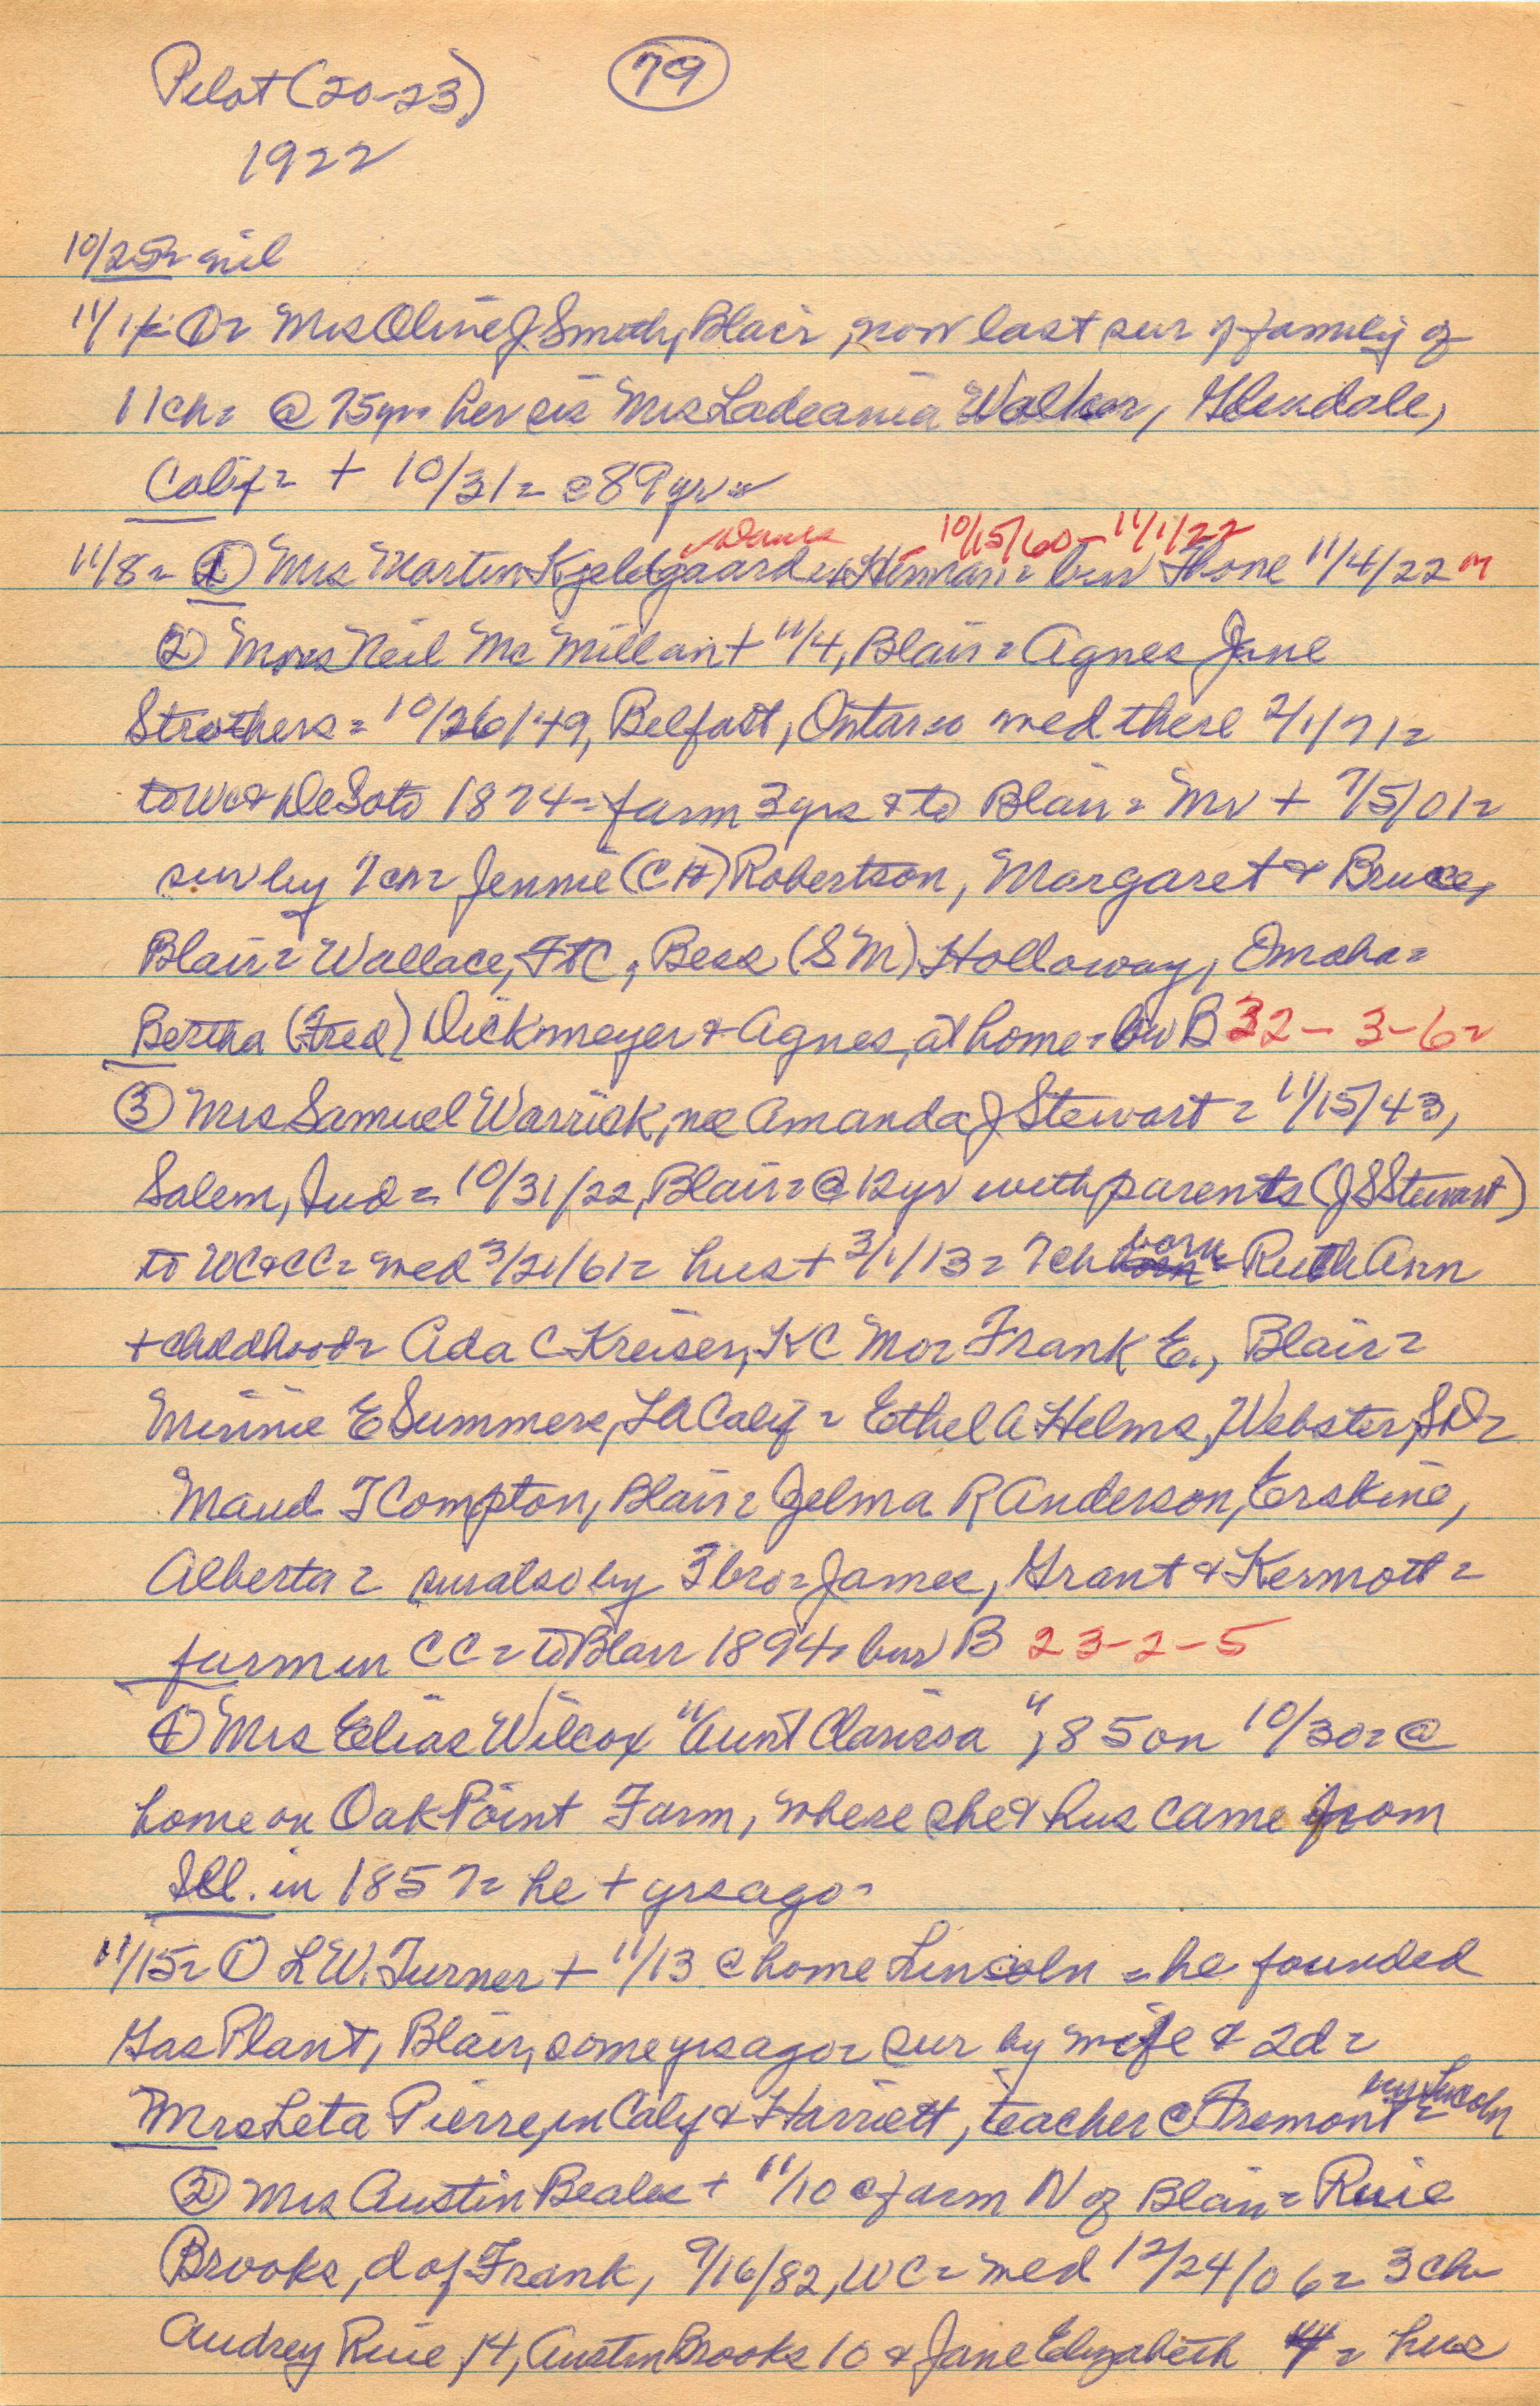 Pilot (20-23) 79
1922
10/25 = nil
11/1 = ① = Mrs Olive J Smith, Blair, now last sur of family of
11 ch = @ 75 yr = her sis Mrs Ladeania Walker, Glendale,
Calif = + 10/31 = @ 89 yrs =
10/15/60 - 11/1/22
11/8 = ① Mrs Martin Kjeldgaard @ Herman = bur Ibone 11/4/22 M
② Mrs Neil McMillan + 11/4, Blair = Agnes Jane
Strothers = 10/26/49, Belfast, Ontario med there 2/1/71 =
to WC & DeSoto 1874 = farm 3 yrs & to Blair = Mr + 7/5/01 =
sur by 7 ch = Jennie (CH) Robertson, Margaret & Bruce,
Blair = Wallace, FtC, Bess (SM) Holloway, Omaha =
Bertha (Fred) Dickmeyer & Agnes, at home = bur B 32 - 3 - 6 =
③ Mrs Samuel Warrick, nee Amanda J Stewart = 11/15/43,
Salem, Ind = 10/31/22, Blair = @ 12 yr with parents (J S Stewart)
to WC & CC = med 3/21/61 = hus + 3/1/13 = 7 ch born = Ruth Ann
+ childhood = Ada C Kreiser, KC Mo = Frank E., Blair =
Minnie E Summers, LA Calif = Ethel A Helms, Webster, SD =
Maud T Compton, Blair = Jelma R Anderson, Erskine,
Alberta = sur also by 3 bro = James, Grant & Kermott =
farm in CC = to Blair 1894 = bur B 23 - 2 - 5
④ Mrs Elias Wilcox "Aunt Clarissa", 85 on 10/30 = @
home on Oak Point Farm, where she & hus came from
Ill. in 1857 = he + yrs ago =
11/15 = ① L W. Turner + 11/13 @ home Lincoln = he founded
Gas Plant, Blair, some yrs ago = sur by wife & 2 d =
Mrs Leta Pierre, in Calif & Harriett, teacher @ Fremont = bur Lincoln
② Mrs Austin Beales + 11/10 @ farm N of Blair = Ruie
Brooks, d of Frank, 9/16/82, WC = med 12/24/06 = 3 ch
Audrey Ruie, 14, Austin Brooks 10 & Jane Elizabeth 4 = hus